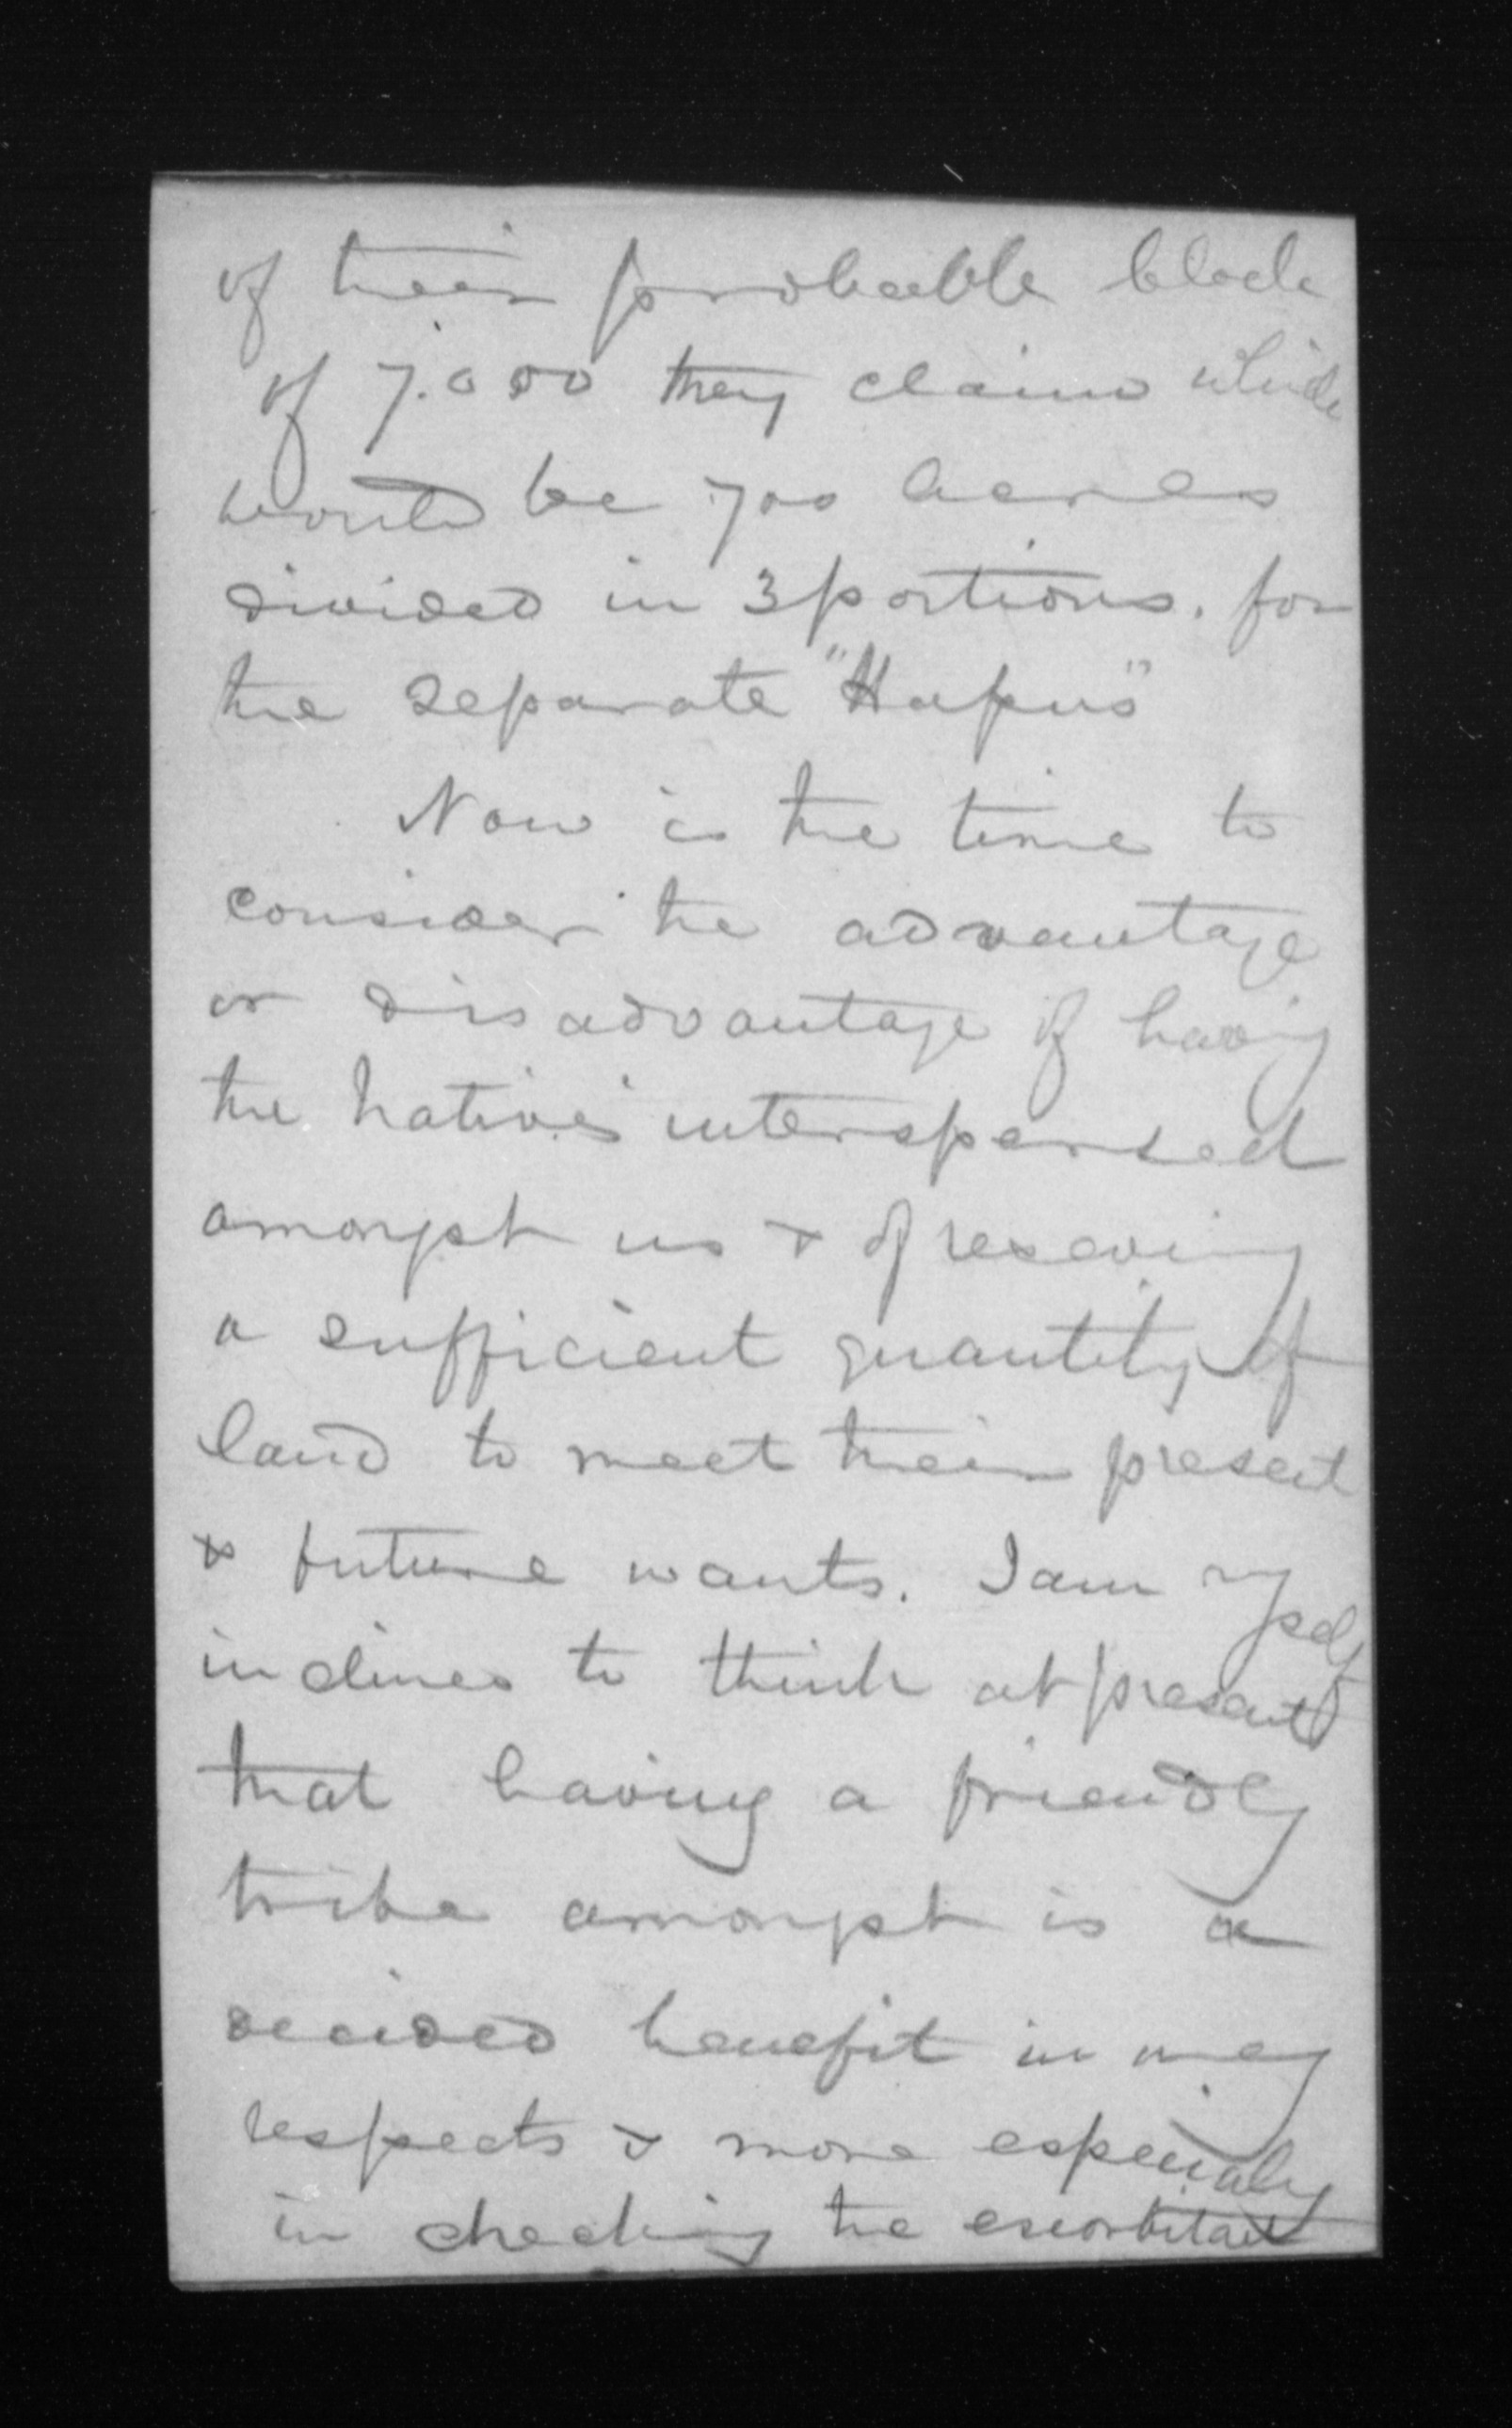 of their probable block
of 7.000 they claim which
would be 700 acres
divided in 3 portions. for
the separate "Hapus"
Now is the time to
consider the advantage
or disadvantage of having
the natives interspersed
amongst us & of reserving
a sufficient quantity of
land to meet their present
& future wants. I am myself
inclined to think at present
that having a friendly
tribe amongst is a
decided benefit in many
respects & more especially
in checking the exorbitant